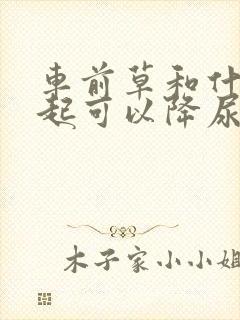 車前草和什
起可以降尿
木子家小小姐